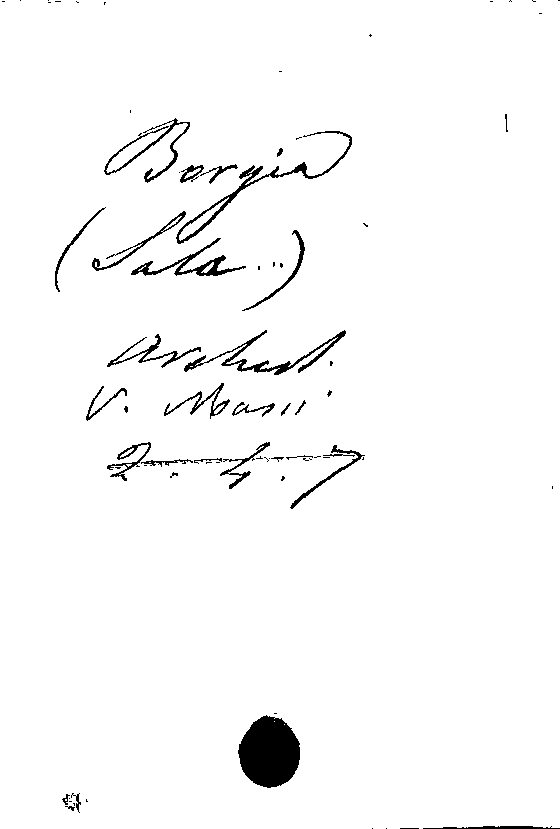 Borgia
(Sala...)
Archest.
V. Masii
2. 4. 7